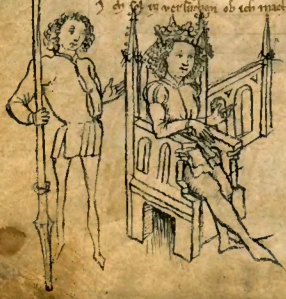 Ich sol ez versuchen ob ich mach